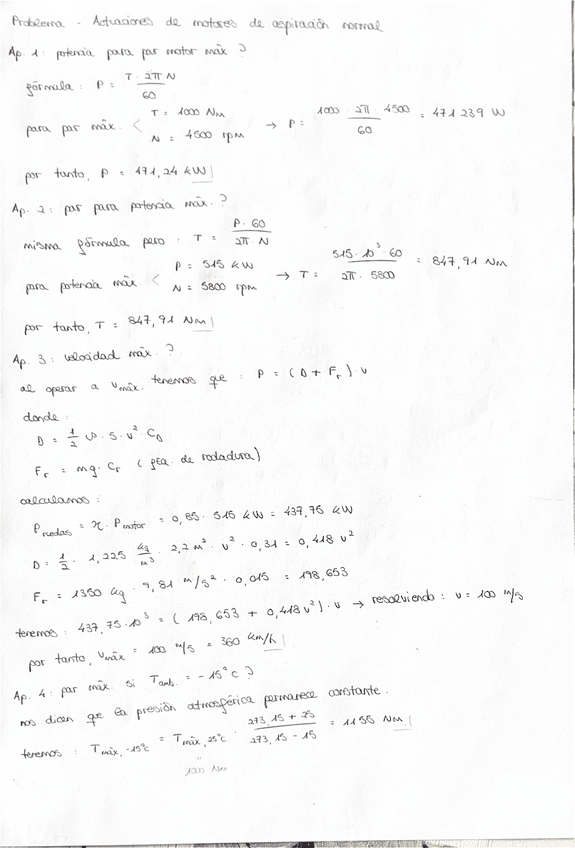 Problema - Actuaciones de motores de aspiración normal
Ap. 1: potencia para par motor máx?
fórmula: P = T · 2π N / 60
para par máx. < T = 1000 Nm N = 4500 rpm → P = 1000 · 2π 4500 / 60 = 471 239 W
por tanto, P = 471,24 kW
Ap. 2: par para potencia máx.?
misma fórmula pero: T = P · 60 / 2π · N
para potencia máx. < P = 515 kW N = 5800 rpm → T = 515 · 10³ · 60 / 2π · 5800 = 847,91 Nm
por tanto, T = 847,91 Nm
Ap. 3: velocidad máx.?
al operar a vmáx. tenemos que: P = (D + Fr) · v
donde:
D = 1/2 ρ · S · v² · CD
Fr = mg · Cr (fza. de rodadura)
calculamos:
Pruedas = η · Pmotor = 0,85 · 515 kW = 437,75 kW
D = 1/2 · 1,225 kg/m³ · 2,2 m² · v² · 0,31 = 0,418 v²
Fr = 1350 kg · 9,81 m/s² · 0,015 = 198,653
tenemos: 437,75 · 10³ = (198,653 + 0,418 v²) · v → resolviendo: v = 100 m/s
por tanto, vmáx = 100 m/s = 360 km/h
Ap. 4: par máx. si Tamb. = -15°C?
nos dicen que la presión atmosférica permanece constante.
tenemos: Tmáx, -15°C = Tmáx, 25°C · 273,15 + 25 / 273,15 - 15 = 1155 Nm
"
1000 Nm